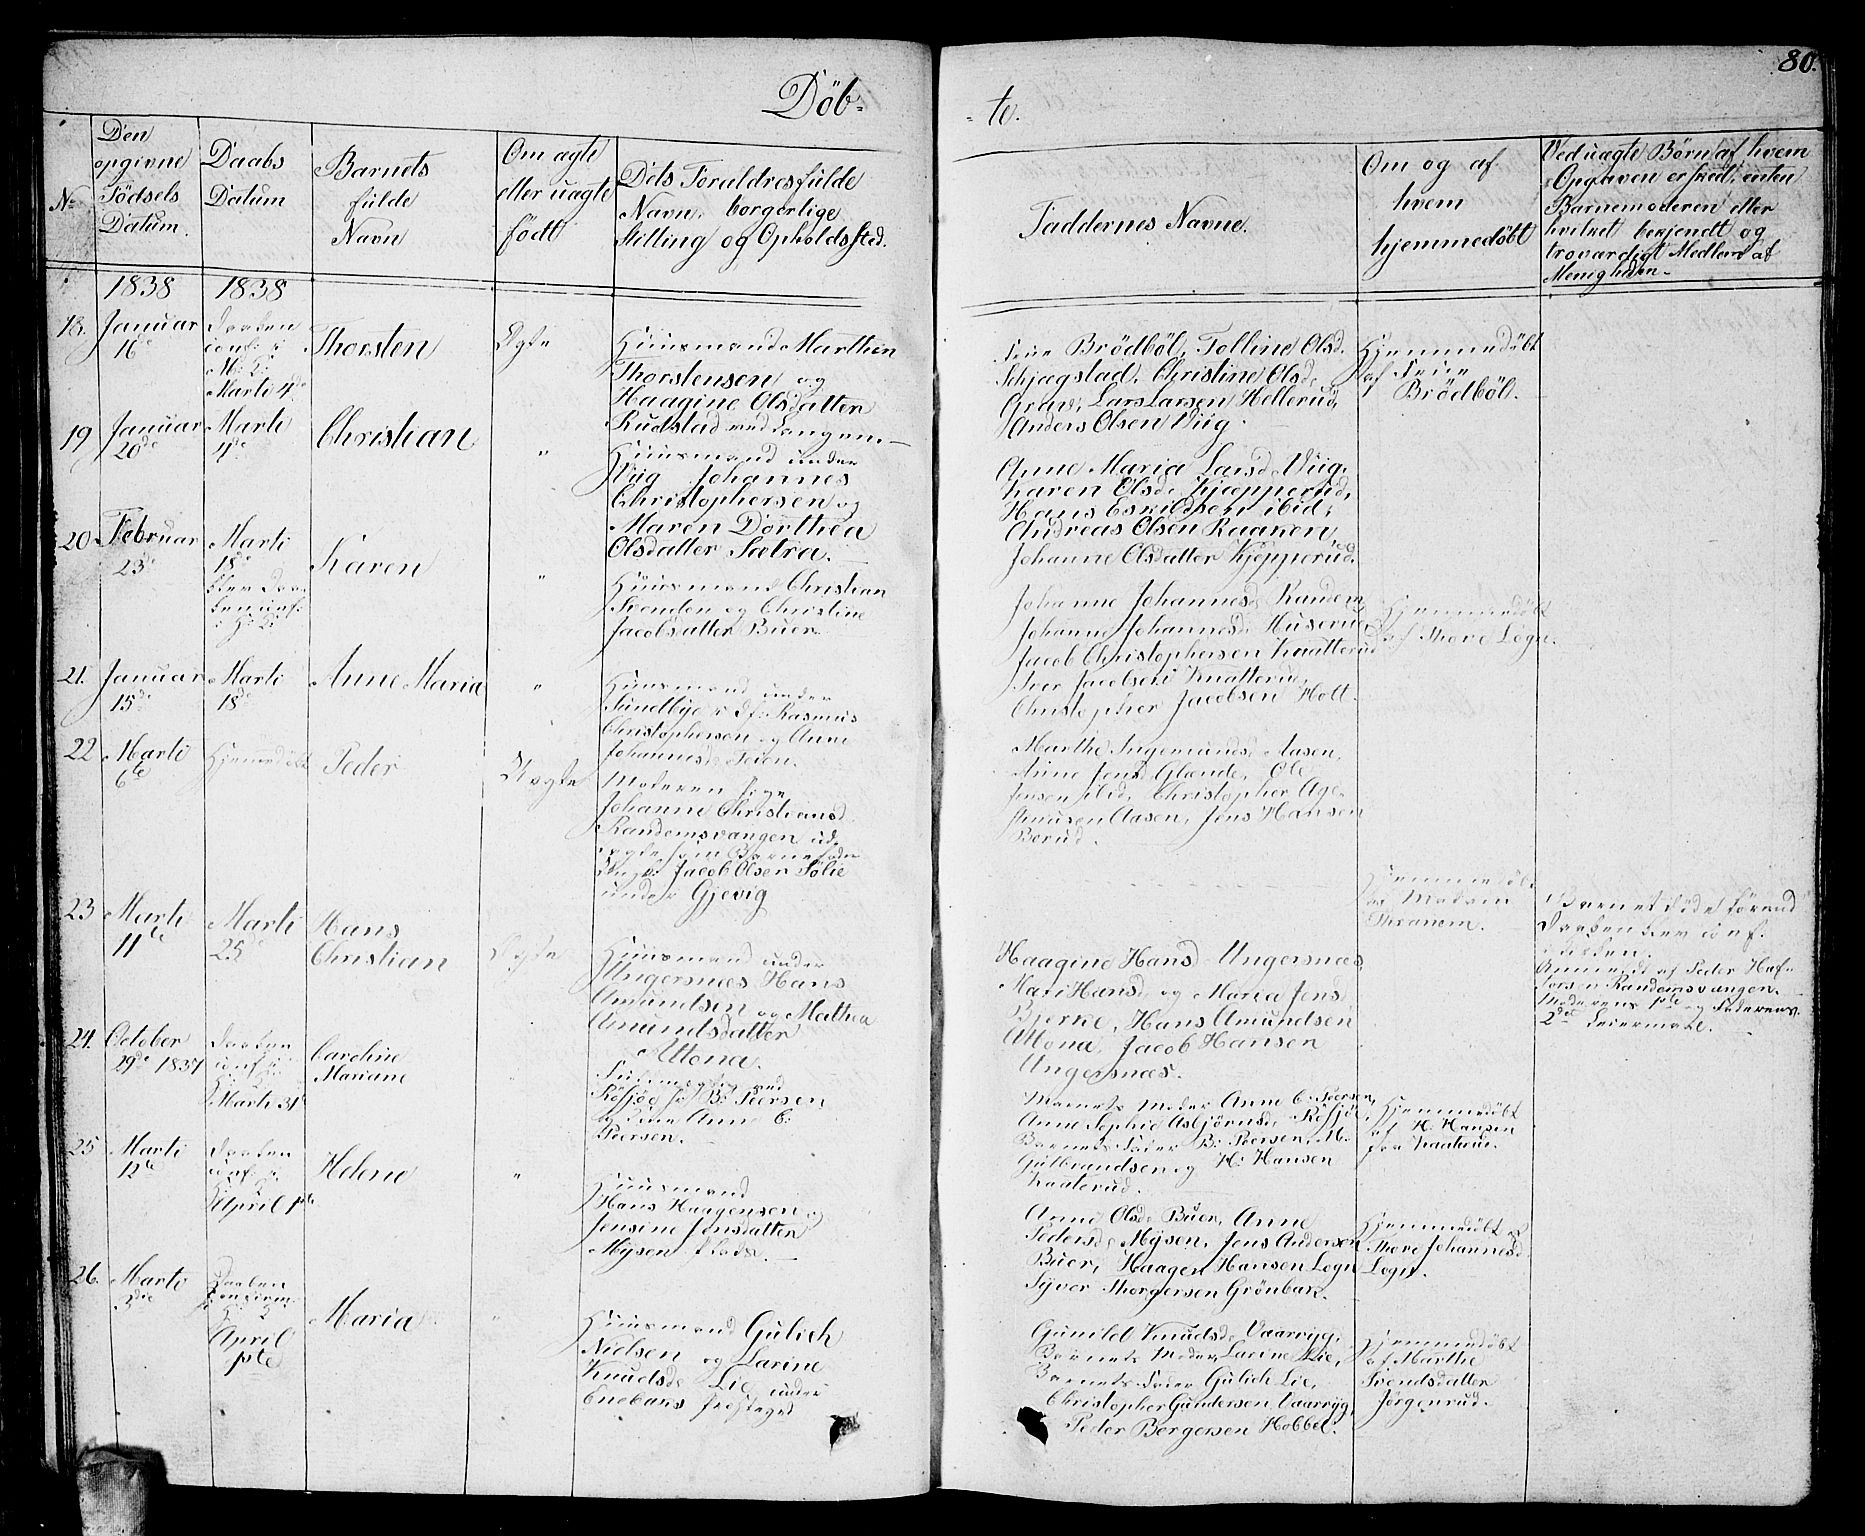 Döb-
- te.
80.
No
Den
opgivne
Födsels
Datum.
Daabs
Datum
Barnets
fulde
Navn
Om ægte
eller uægte
födt
Dets Forældres fulde
Navn, borgerlige
Stilling og Opholdssted.
Faddernes Navne.
Om og af
hvem
hjemmedöbt
Ved uægte Börn, af hvem
Opgaven er skeet, enten
Barnemoderen eller
hvilket bekjendt og
troværdigt Medlem af
Menigheden.
1838
1838
18.
Januar
16de
Daaben
conf. i
Marti 4de
Thorsten
Ægte
Huusmand Marthin
Thorstensen og
Haagine Olsdatter
Rudstad ved Langen.
Brödböl, Tolline Olsd.
Schjægstad, Christine Olsd.
Grav, Lars Larsen Hellerud,
Anders Olsen Viig.
Hjemmedöbt
af
Brödböl.
19
Januar
20de
Marti
4de
Christian
"
Huusmand under
Viig Johannes
Christophersen og
Maren Dorthea
Olsdatter Sætra.
Anne Maria Larsd. Viig,
Karen Olsd. Kjepperud,
Hans Eskildsen ibid,
Andreas Olsen Raaken,
Johanne Olsdatter Kjepperud.
20
Februar
23de
Marti
18de
blev Daa-
ben conf.
Karen
"
Huusmand Christian
Svendsen og Christine
Jacobsdatter Buer.
Johanne Johannesd. Randem,
Johanne Johannesd. Huserud,
Jacob Christophersen Knatterud
Iver Jacobsen Knatterud,
Christopher Jacobsen Holt.
Hjemmedöbt
af Thore Logn.
21.
Januar
15de
Marti
18de
Anne Maria
"
Huusmand under
Sundbye Rasmus
Christophersen og Anne
Johannesd. Teien.
Marthe Ingemunds. Aasen,
Anne Jensd. Glende, Ole
Jensen ibid, Christopher Age-
Aasen, Jens Hansen
Berud.
22
Marti
6te
Hjemmedöbt
Peder
Uægte
Moderen Pige
Johanne Christiansd.
Randemsvangen ud-
lagte som Barnefader
Ungk. Jacob Olsen Sølie
under Gjevig
Hjemmedöbt
af Madam
Thranem.
Barnet döde förend
Daaben blev conf.
i Kirken.
Anmeldt af Peder Haf-
torsen Randemsvangen.
Moderens 1ste og Faderens
2det Leiermaal.
23
Marti
11te
Marti
25de
Hans
Christian
Ægte
Huusmand under
Ungersnæs Hans
Amundsen og Mathea
Amundsdatter
Altona.
Haagine Hansd. Ungersnæs,
Kari Hansd. og Maria Jensd.
Bjerke, Hans Amundsen
Altona, Jacob Hansen
Ungersnæs.
24.
October
29de 1837
Daaben
conf. i
Marti 31te
Caroline
Mariane
"
ved
Röfjöe B: Peersen
og Ann C:
Peersen.
Barnets Moder Anne C: Peersen,
Anne Sophie Asbjörnsd. Röfjöe,
Barnets Fader B: Peersen, M.
Gulbrandsen og H: Hansen
Kaaterud.
Hjemmedöbt
af H: Hansen
fra Kaaterud.
25
Marti
12te
Daaben
conf. i
April 1ste
Helene
"
Huusmand
Hans Haagensen og
Jensine Jensdatter
Mysen
Anne Olsd. Buer, Anne
Pedersd. Mysen, Jens Andersen
Buer, Haagen Hansen Logn
Syver Thorgersen Grönbæk.
Hjemmedöbt af
Thore Johannesd.
Logn.
26.
Marti
3die
Daaben
confirm.
April
1ste
Maria
"
Huusmand Gulich
Nielsen og Larine
Knudsd. Lie under
Enebaks Præstegd.
Gunild Knudsd. Vaarryg,
Barnets Moder Larine Lie,
Barnets Fader Gulich Lie,
Christopher Gundersen Vaarryg,
Peder Borgersen Hobbel.
Hjemmedöbt
af Marthe
Svendsdatter
Jörgenrud.